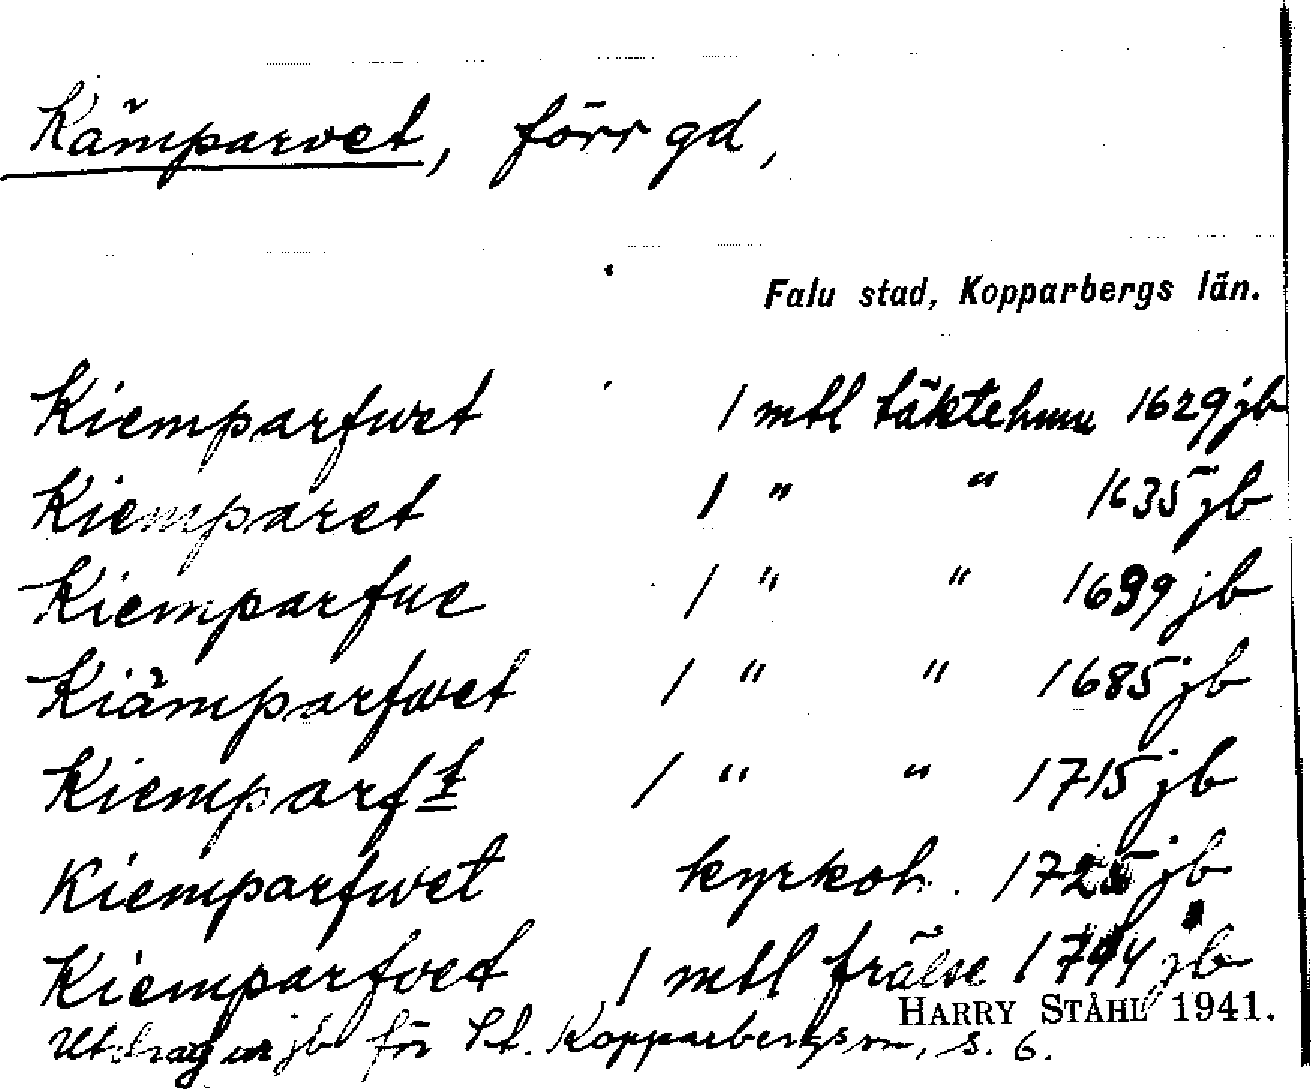 Kämparvet, förr gd,
Falu stad, Kopparbergs län.
Kiemparfwet 1 mtl täktehem 1629 jb
Kiemparet 1 " " 1635 jb
Kiemparfue 1 " " 1699 jb
Kiämparfwet 1 " " 1685 jb
Kiemparft 1 " " 1715 jb
Kiemparfwet kyrkoh. 1725 jb
Kiemparfvet 1 mtl frälse 1744 jb
HARRY STÅHL 1941.
Utdrag ur jb för St. Kopparbergs sn, s. 6.